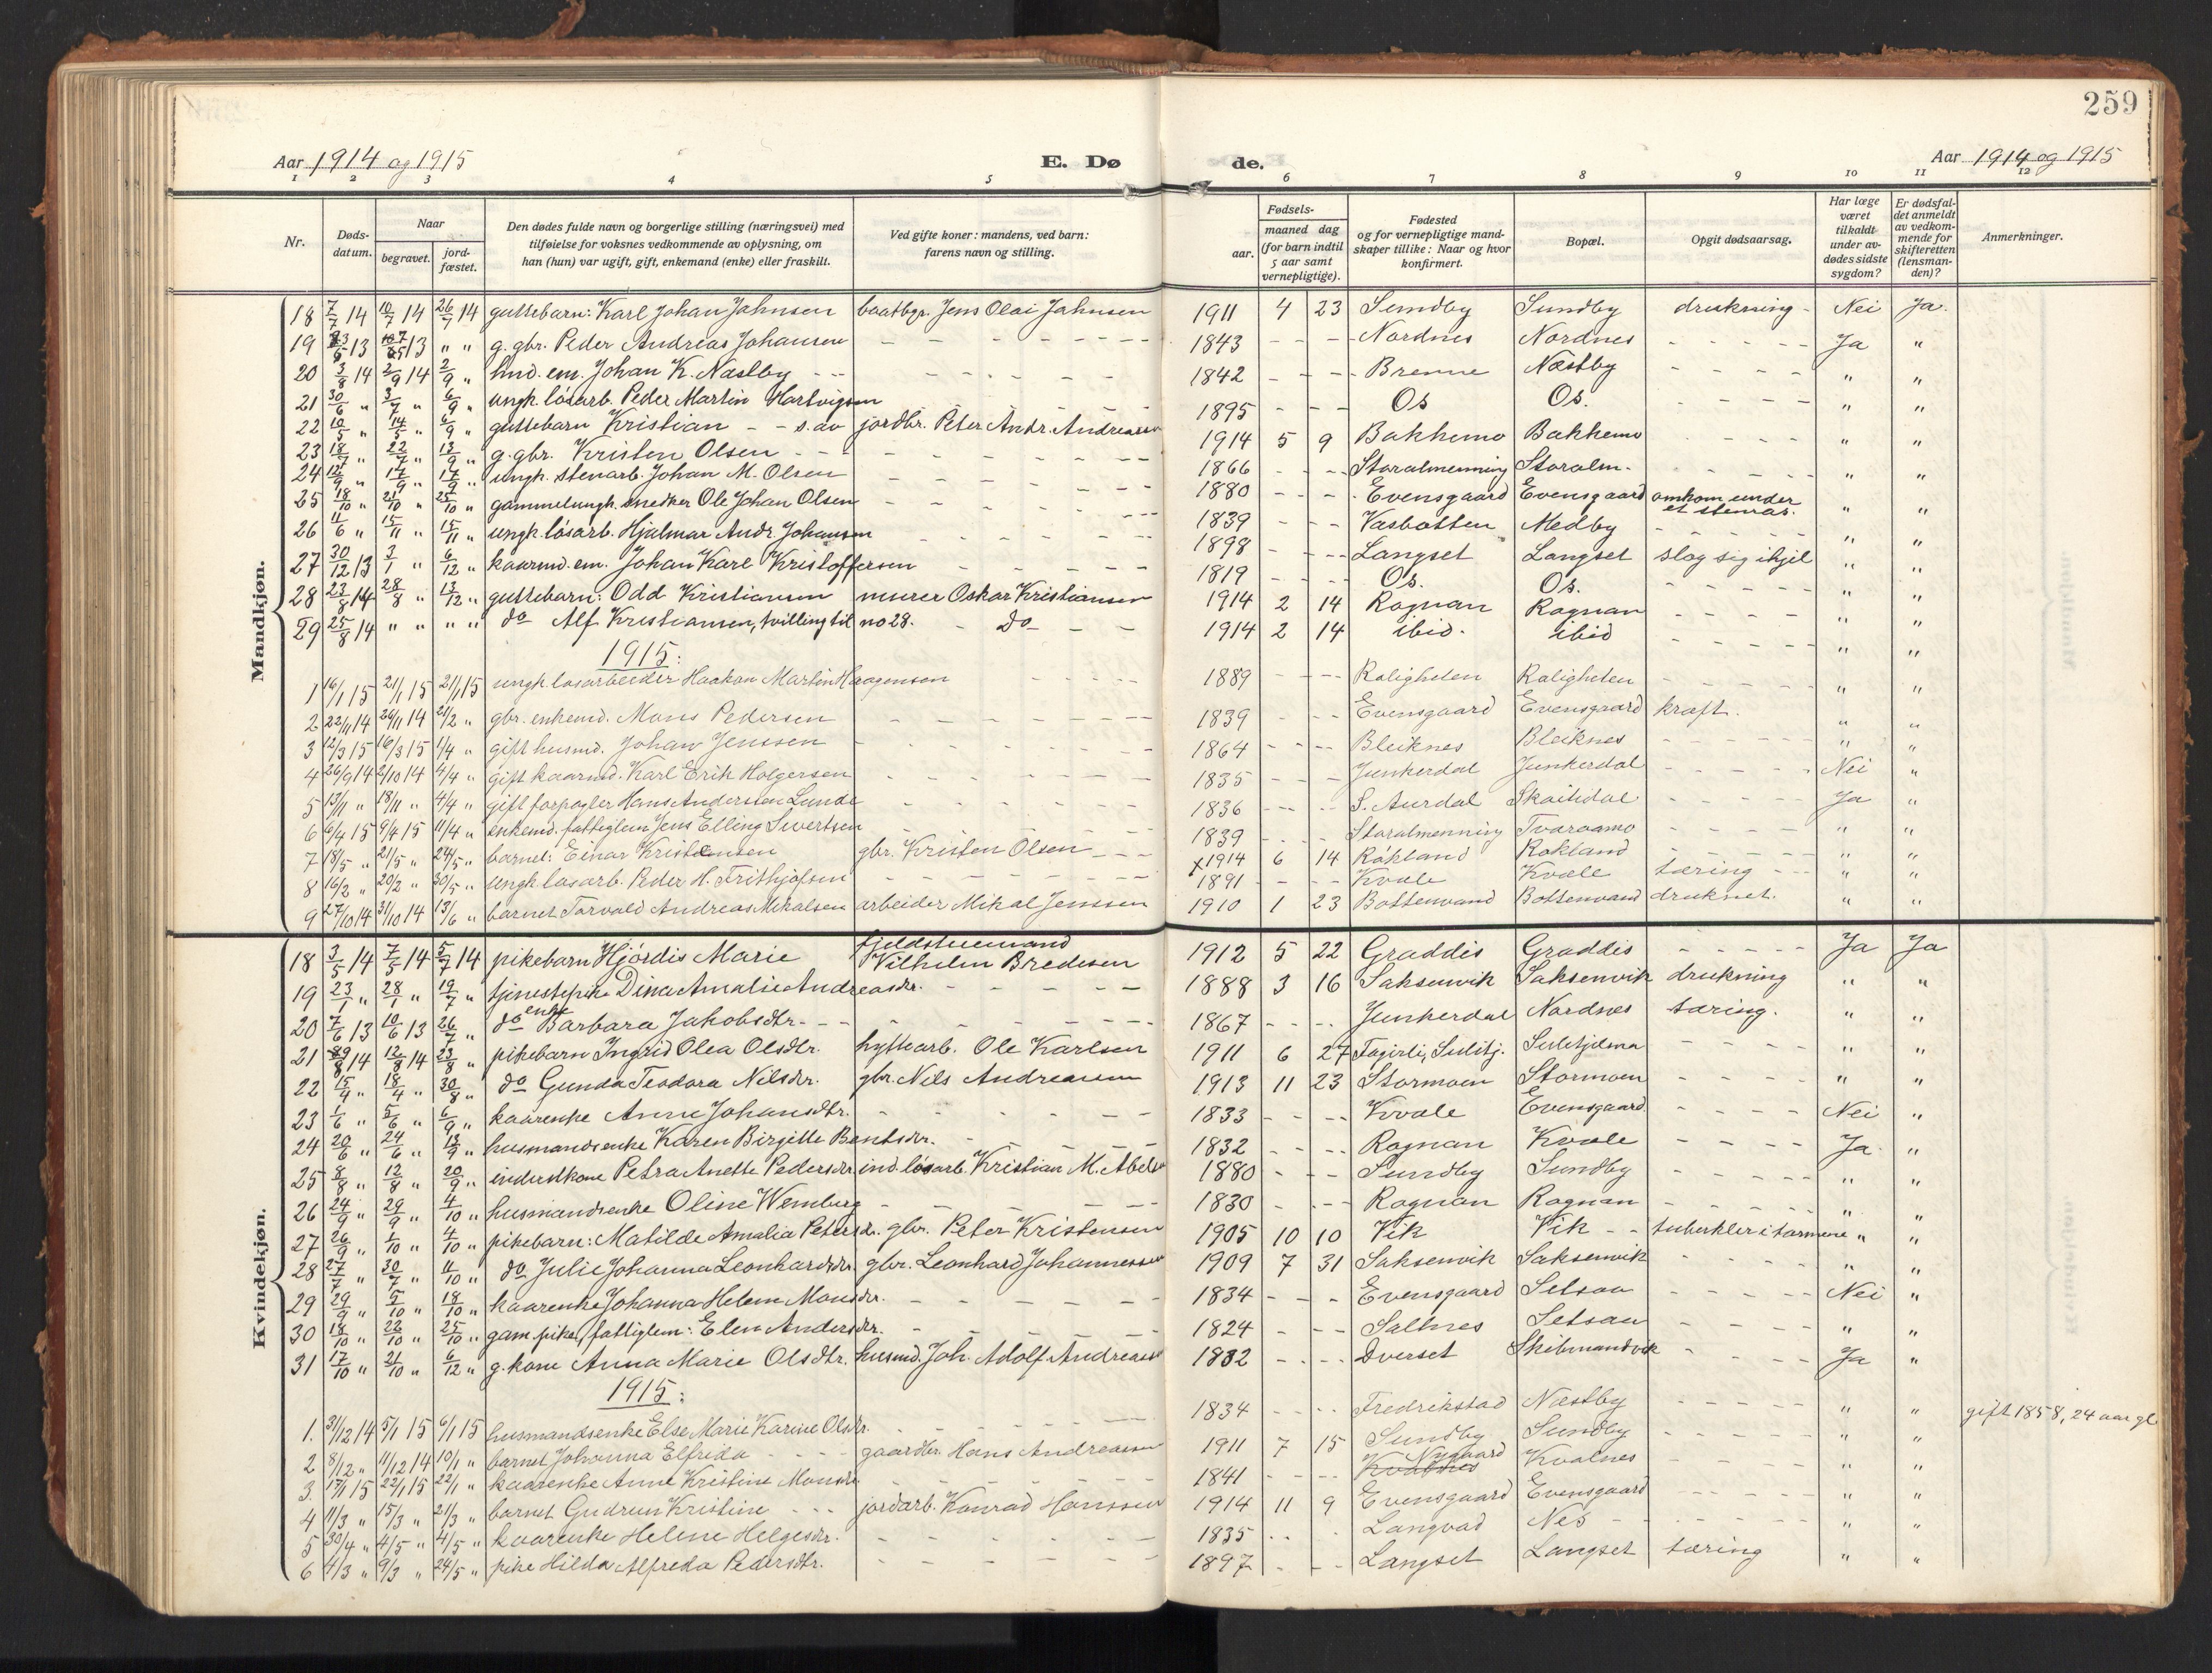 259
Aar 1914 og 1915 E. Dø de. Aar 1914 og 1915
1 2 3 4 5 6 7 8 9 10 11 12
Nr. Døds-datum. Naar begravet. jord-fæstet. Den dødes fulde navn og borgerlige stilling (næringsvei) med tilføielse for voksnes vedkommende av oplysning, om han (hun) var ugift, gift, enkemand (enke) eller fraskilt. Ved gifte koner: mandens, ved barn: farens navn og stilling. Fødsels- aar. maaned dag (for barn indtil 5 aar samt vernepligtige). Fødested og for vernepligtige mand-skaper tillike: Naar og hvor konfirmert. Bopæl. Opgit dødsaarsag. Har læge været tilkaldt under av-dødes sidste sygdom? Er dødsfal-det anmeldt av vedkom-mende for skifteretten (lensman-den)? Anmerkninger.
Mandkjøn.
18 7/7 14 10/7 14 26/7 14 guttebarn: Karl Johan Jahnsen baatbgr. Jens Olai Jahnsen 1911 4 23 Sundby Sundby drukning - Nei Ja.
19 13 " " g. gbr. Peder Andreas Johansen - - - 1843 - - Nordnes Nordnes - - - Ja "
20 3/8 14 2/9 14 2/9 " hmd. em. Johan K. Næstby - - - 1842 - - Brenne Næstby - - - " "
21 30/6 " 3/7 " 6/9 " ungk. løsarb. Peder Martin Hartvigsen 1895 - - Os Os. - - - " "
22 10/5 " 14/5 " 6/9 " guttebarn Kristian - - s. av jordbr. Peter Andr. Andreassen 1914 5 9 Bakhemo Bakhemo - - - " "
23 18/7 " 22/7 " 13/9 " g. gbr. Kristen Olsen - - - 1866 - - Storalmenning Storalm. - - - " "
24 12/9 " 17/9 " 17/9 " ungk. stenarb. Johan M. Olsen - - - 1880 - - Evensgaard Evensgaard omkom under et stenras. " "
25 18/10 " 21/10 " 25/10 " gammelungk. snedker Ole Johan Olsen - - - 1839 - - Vasbotten Medby - - - " "
26 11/6 " 15/11 " 15/11 " ungk. løsarb. Hjalmar Andr. Johansen - - - 1898 - - Langset Langset slog sig ihjel " "
27 30/12 13 3/1 " 6/12 " kaarmd. em. Johan Karl Kristoffersen - - - 1819 - - Os. Os. - - - " "
28 23/8 14 28/8 " 13/12 " guttebarn: Odd Kristiansen murer Oskar Kristiansen 1914 2 14 Rognan Rognan - - - " "
29 25/8 14 " " " " do Alf Kristiansen, tvilling til no 28. - do - - 1914 2 14 ibid. ibid - - - " "
1915:
1 16/1 15 21/1 15 21/1 15 ungk. løsarbeider Haakon Martin Haagensen - - - 1889 - - Roligheten Roligheten - - - " "
2 22/11 14 26/11 14 21/2 " gbr. enkemd. Mons Pedersen - - - 1839 - - Evensgaard Evensgaard kræft. " "
3 12/3 15 16/3 15 1/4 " gift husmd. Johan Jenssen - - - 1864 - - Bleiknes Bleiknes - - - " "
4 26/9 14 2/10 14 4/4 " gift kaarmd. Karl Erik Holgersen - - - 1835 - - Junkerdal Junkerdal - - - Nei "
5 13/11 " 18/11 " 4/4 " gift forpagter Hans Anderssen Lunde - - - 1836 - - S. Aurdal Skaitidal - - - Ja "
6 6/4 15 9/4 15 11/4 " enkemd. fattiglem Jens Elling Sivertsen - - - 1839 - - Storalmenning Tvaraamo - - - " "
7 18/5 " 21/5 " 24/5 " barnet: Einar Kristensen gbr. Kristen Olsen - - x1914 6 14 Røkland Rokland - - - " "
8 16/2 " 20/2 " 30/5 " ungk. løsarb. Peder H. Frithjofsen - - - 1891 - - Kvæle Kvæle tæring - - " "
9 27/10 14 31/10 14 13/6 " barnet Torvald Andreas Mikalsen arbeider Mikal Jenssen 1910 1 23 Bottenvand Bottenvand druknet. " "
Kvindekjøn.
18 3/5 14 7/5 14 5/7 14 pikebarn Hjørdis Marie fjeldstuemand Vilhelm Bredesen 1912 5 22 Graddis Graddis - - - Ja Ja
19 23/1 " 28/1 " 19/7 " tjenestepike Dina Amalie Andreasdtr. - - - 1888 3 16 Saksenvik Saksenvik drukning " "
20 7/6 13 10/6 13 26/7 " do enke Barbara Jakobsdtr. - - - 1867 - - Junkerdal Nordnes tæring. " "
21 14 12/8 14 23/8 " pikebarn Ingrid Olea Olsdtr. hyttearb. Ole Karlsen 1911 6 27 Fagerli, Sulitj. Sulitjelma - - - " "
22 15/4 " 18/4 " 30/8 " do Gunda Teodora Nilsdtr. gbr. Nils Andreassen 1913 11 23 Stormoen Stormoen - - - " "
23 1/6 " 5/6 " 6/9 " kaarenke Anne Johansdtr. - - - 1833 - - Kvæle Evensgaard - - - Nei "
24 20/6 " 24/6 " 13/9 " husmandsenke Karen Birgitte Bentsdtr. - - - 1832 - - Rognan Kvæle - - - Ja. "
25 8/8 " 12/8 " 20/9 " inderstkone Petra Anette Pedersdtr. ind. løsarb. Kristian M. Abels 1880 - - Sundby Sundby - - - " "
26 24/9 " 29/9 " 4/10 " husmandsenke Oline Wemberg - - - 1830 - - Rognan Rognan - - - " "
27 26/9 " 1/10 " 4/10 " pikebarn: Matilde Amalia Petersdr. gbr. Peter Kristensen 1905 10 10 Vik Vik - - tuberkler i tarmene " "
28 27/7 " 30/7 " 11/10 " do Julie Johanna Leonhardsdr. gbr. Leonhard Johannessen 1909 7 31 Saksenvik Saksenvik - - - " "
29 29/9 " 5/10 " 18/10 " kaarenke Johanna Helene Monsdr. - - - 1834 - - Evensgaard Setsaa - - - Nei "
30 18/10 " 22/10 " 25/10 " gam. pike, fattiglem: Elen Andersdtr. - - - 1824 - - Saltnes Setsaa - - - " "
31 17/10 " 21/10 " 6/12 " g. kone Anna Marie Olsdtr. husmd. Joh. Adolf Andreassen 1832 - - Dverset Skibmandvik - - - Ja "
1915:
1. 31/12 14 5/1 15 6/1 15 husmandsenke Else Marie Karine Olsdr. - - - 1834 - - Fredrikstad Næstby - - - " " gift 1858, 24 aar gl.
2 8/12 " 11/12 14 10/1 " barnet Johanna Elfrida - - gaardbr. Hans Andreassen 1911 7 15 Sundby Sundby - - - " "
3. 17/1 15 22/1 15 22/1 " kaarenke Anne Kristine Monsdr. - - - 1841 - - Kvalnes Nygaard Kvalnes - - - " "
4 11/3 " 15/3 " 21/3 " barnet Gudrun Kristine - - jordarb. Konrad Hanssen 1914 11 9 Evensgaard Evensgaard - - - " "
5 30/4 " 4/5 " 4/5 " kaarenke Helene Helgesdr. - - - 1835 - - Langvad Nes - - - " "
6 4/3 " 9/3 " 24/5 " pike Hilda Alfreda Pedersdtr. - - - 1897 - - Langset Langset tæring " "